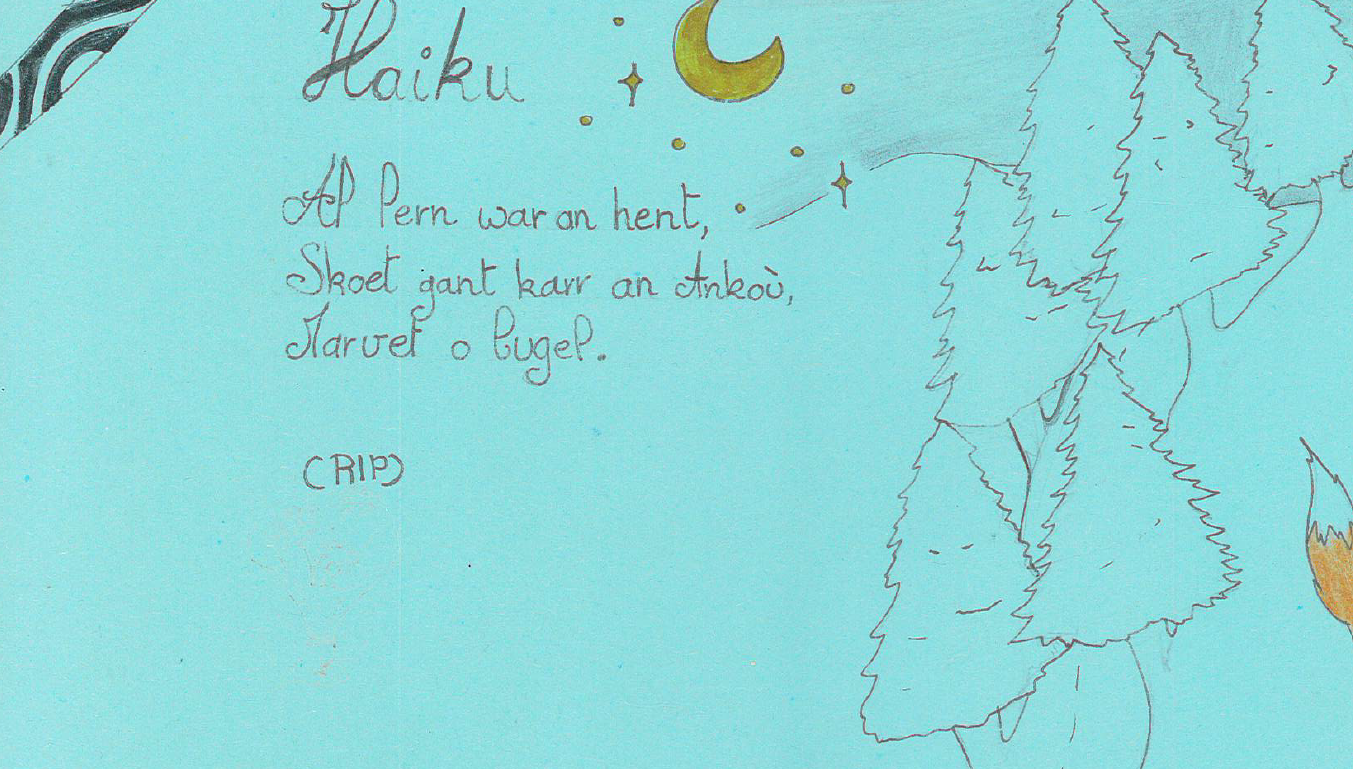 Haiku
Al lern war an hent,
Skoet gant karr an Ankoù,
Marvet o bugel.
(RIP)